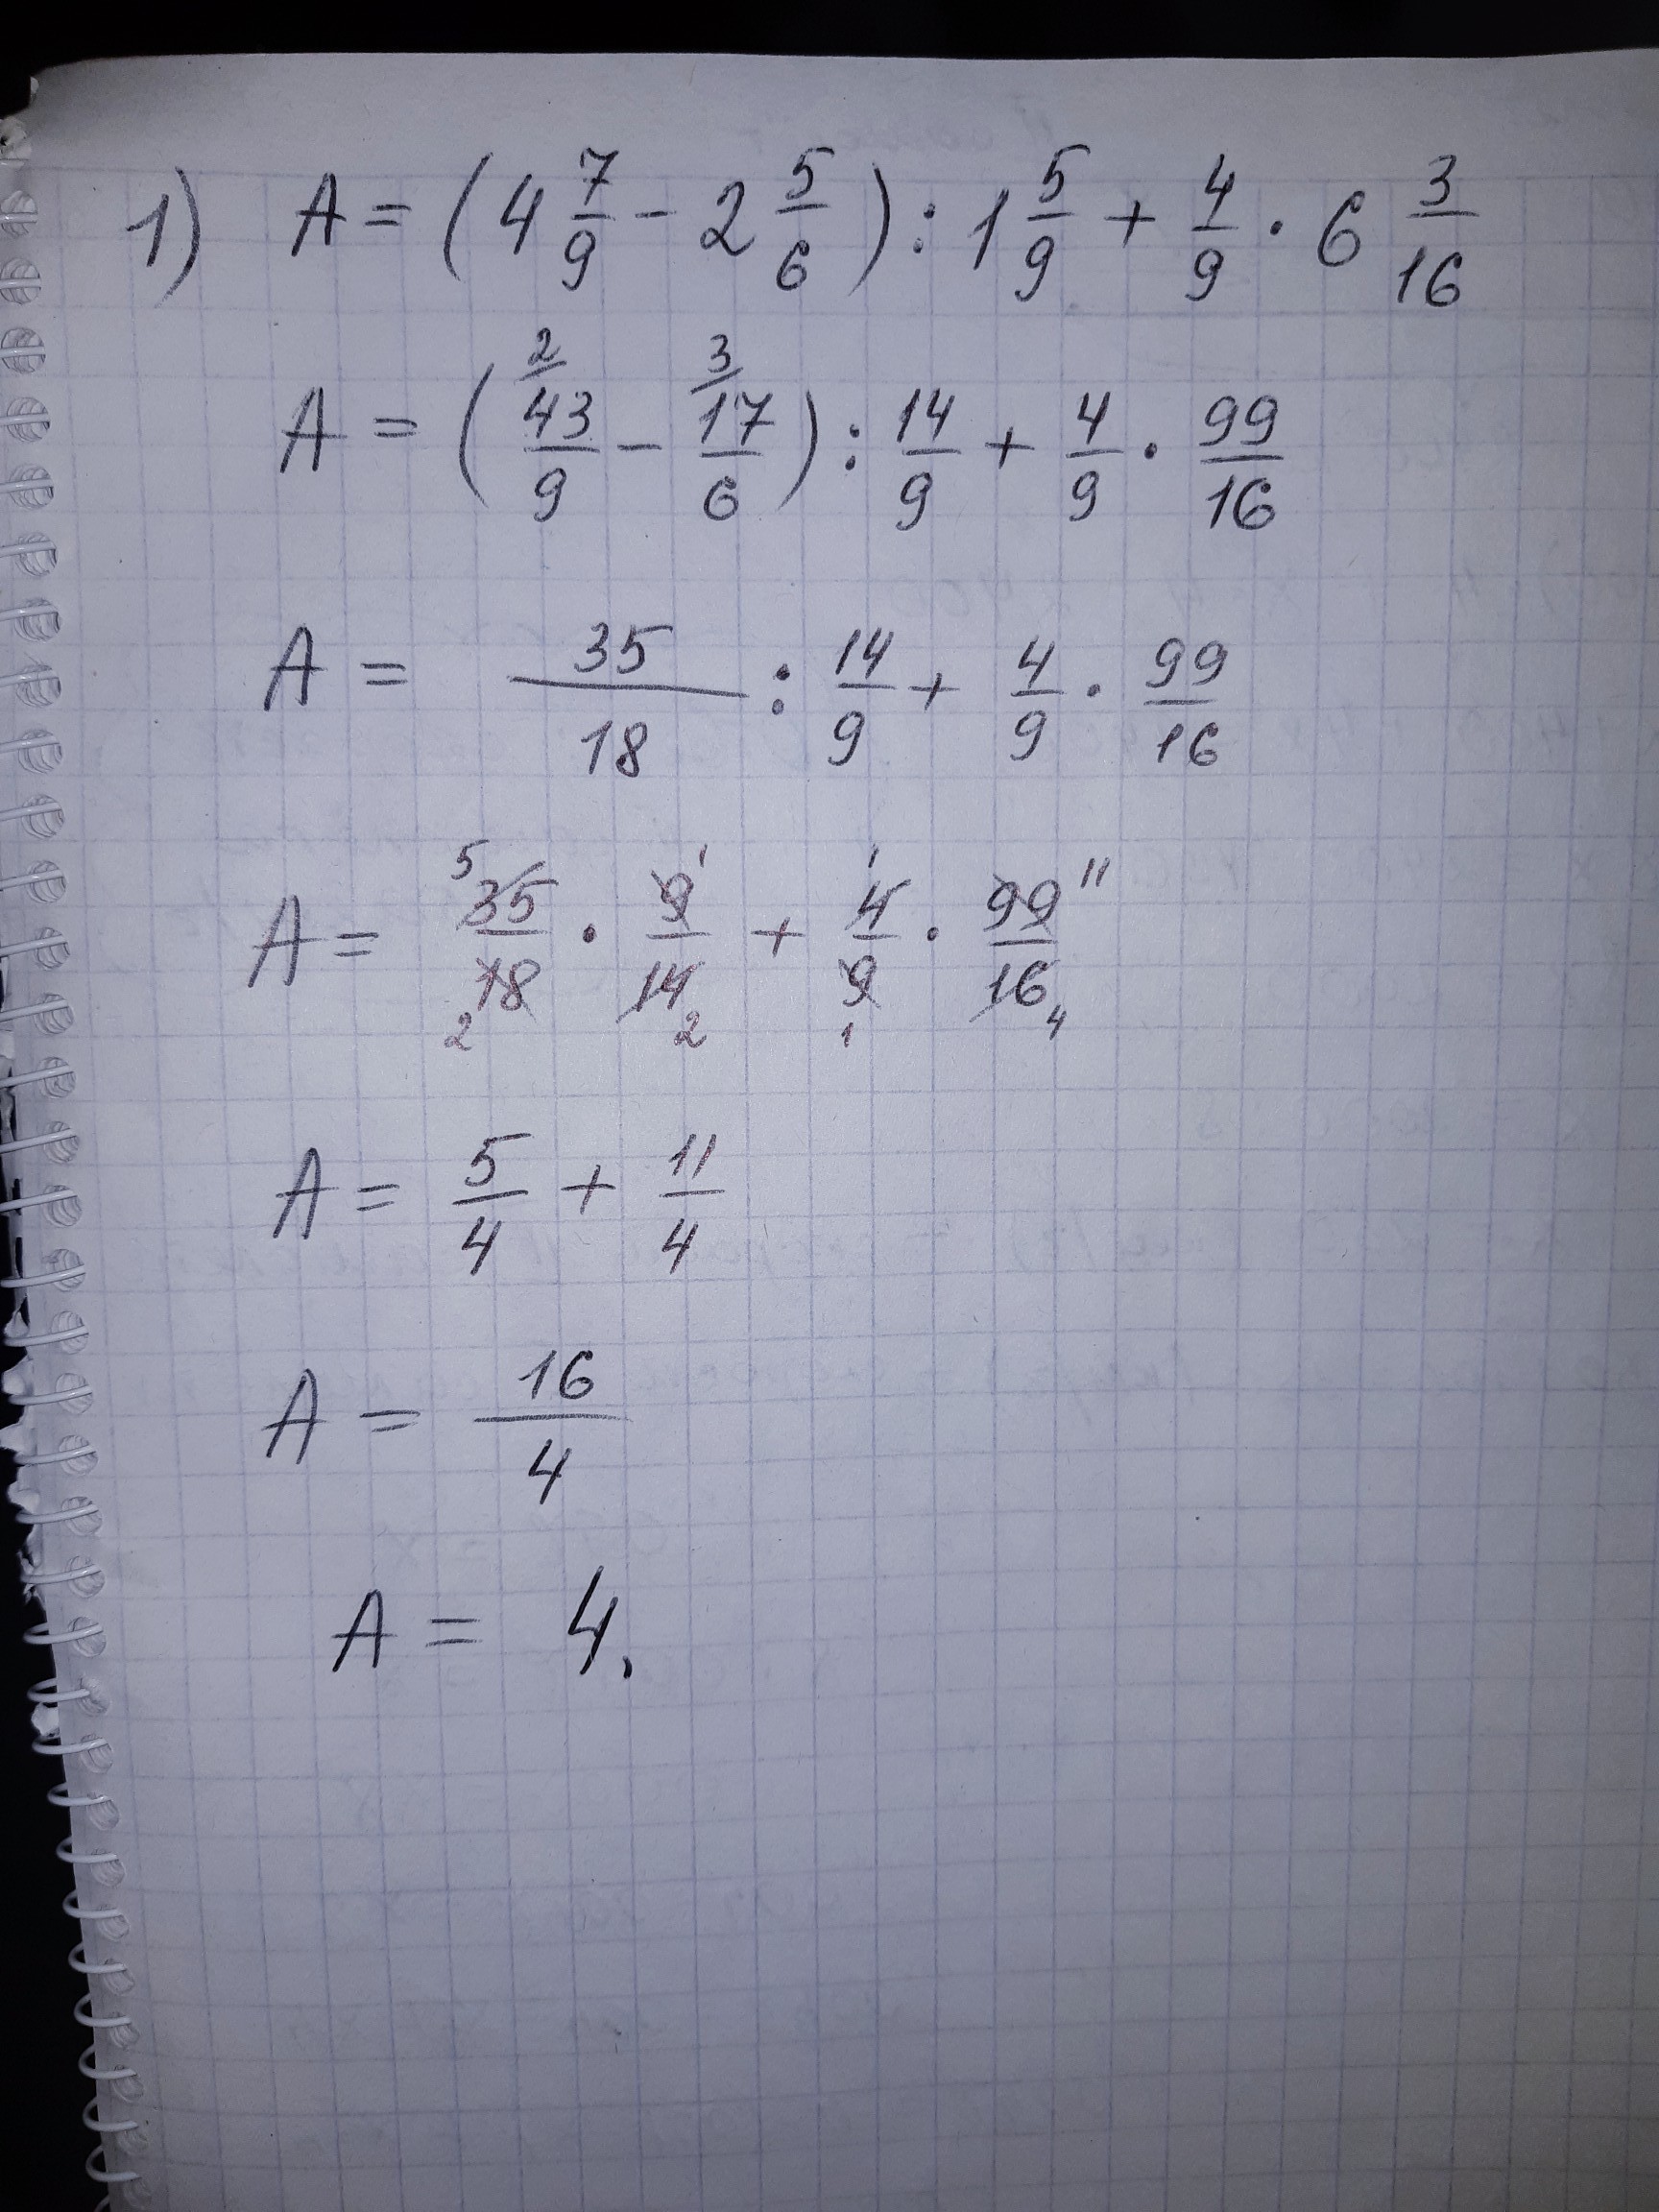 1) A = (4 7/9 - 2 5/6) : 1 5/9 + 4/9 · 6 3/16
A = (2/ 43/9 - 3/ 17/6) : 14/9 + 4/9 · 99/16
A = 35/18 : 14/9 + 4/9 · 99/16
A = 5 35/18 2 · 9 1/14 2 + 1 4/9 1 · 99 11/16 4
A = 5/4 + 11/4
A = 16/4
A = 4.